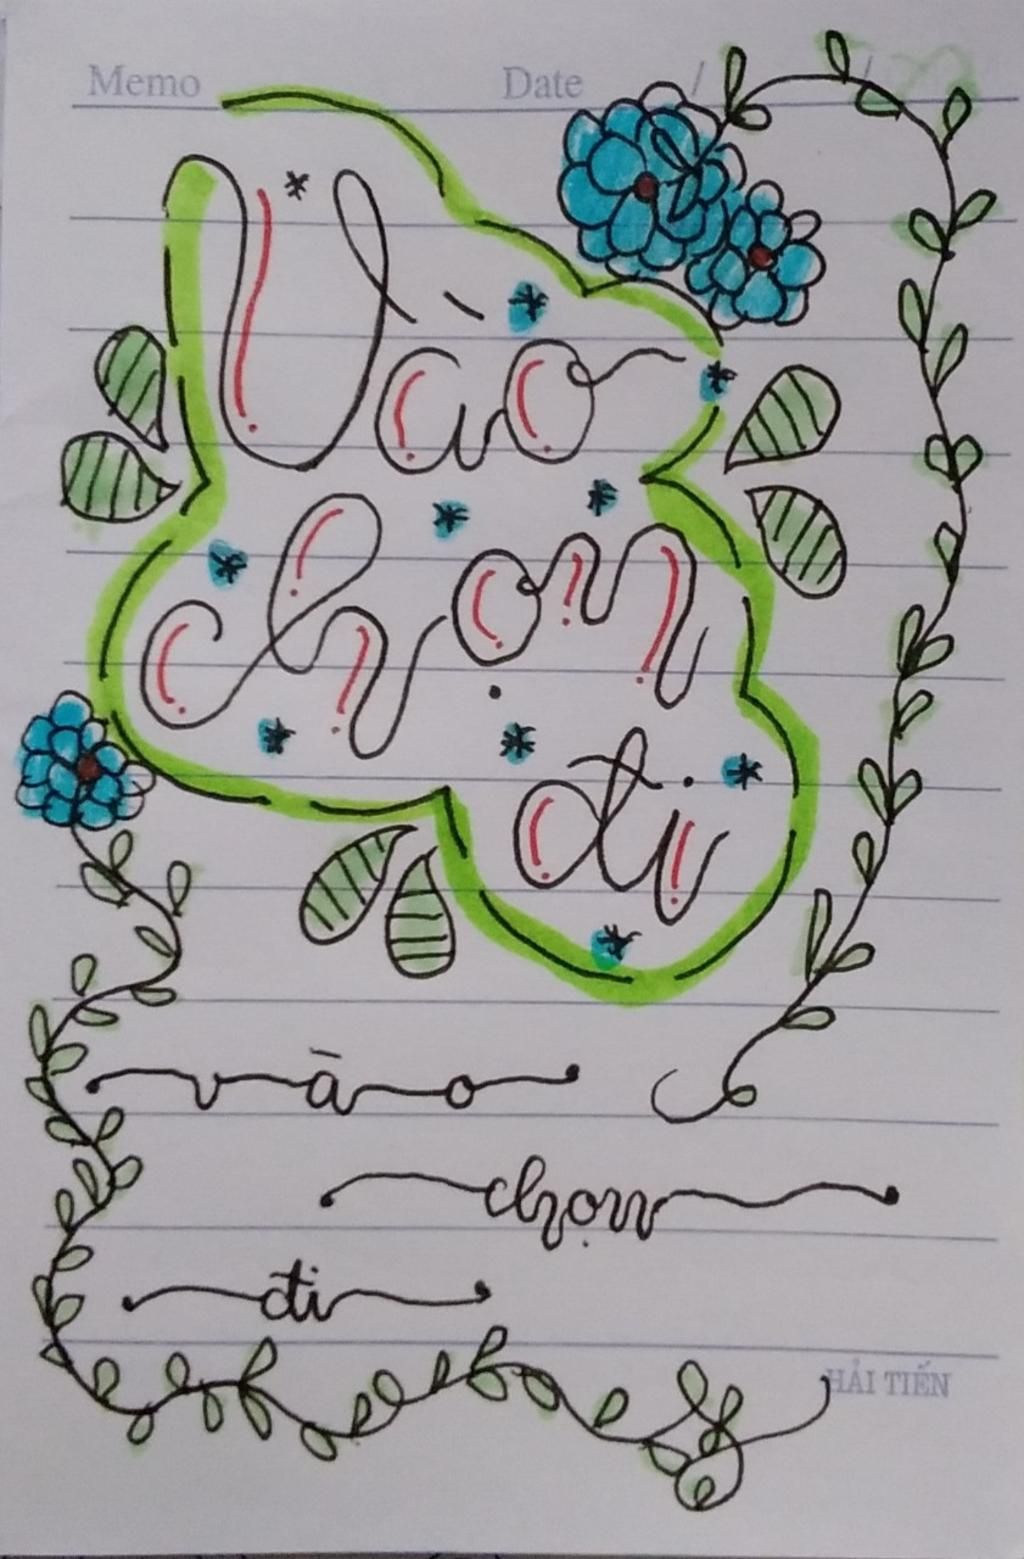 Memo Date / /
Vào
chọn
đi
vào
chọn
đi
HẢI TIẾN